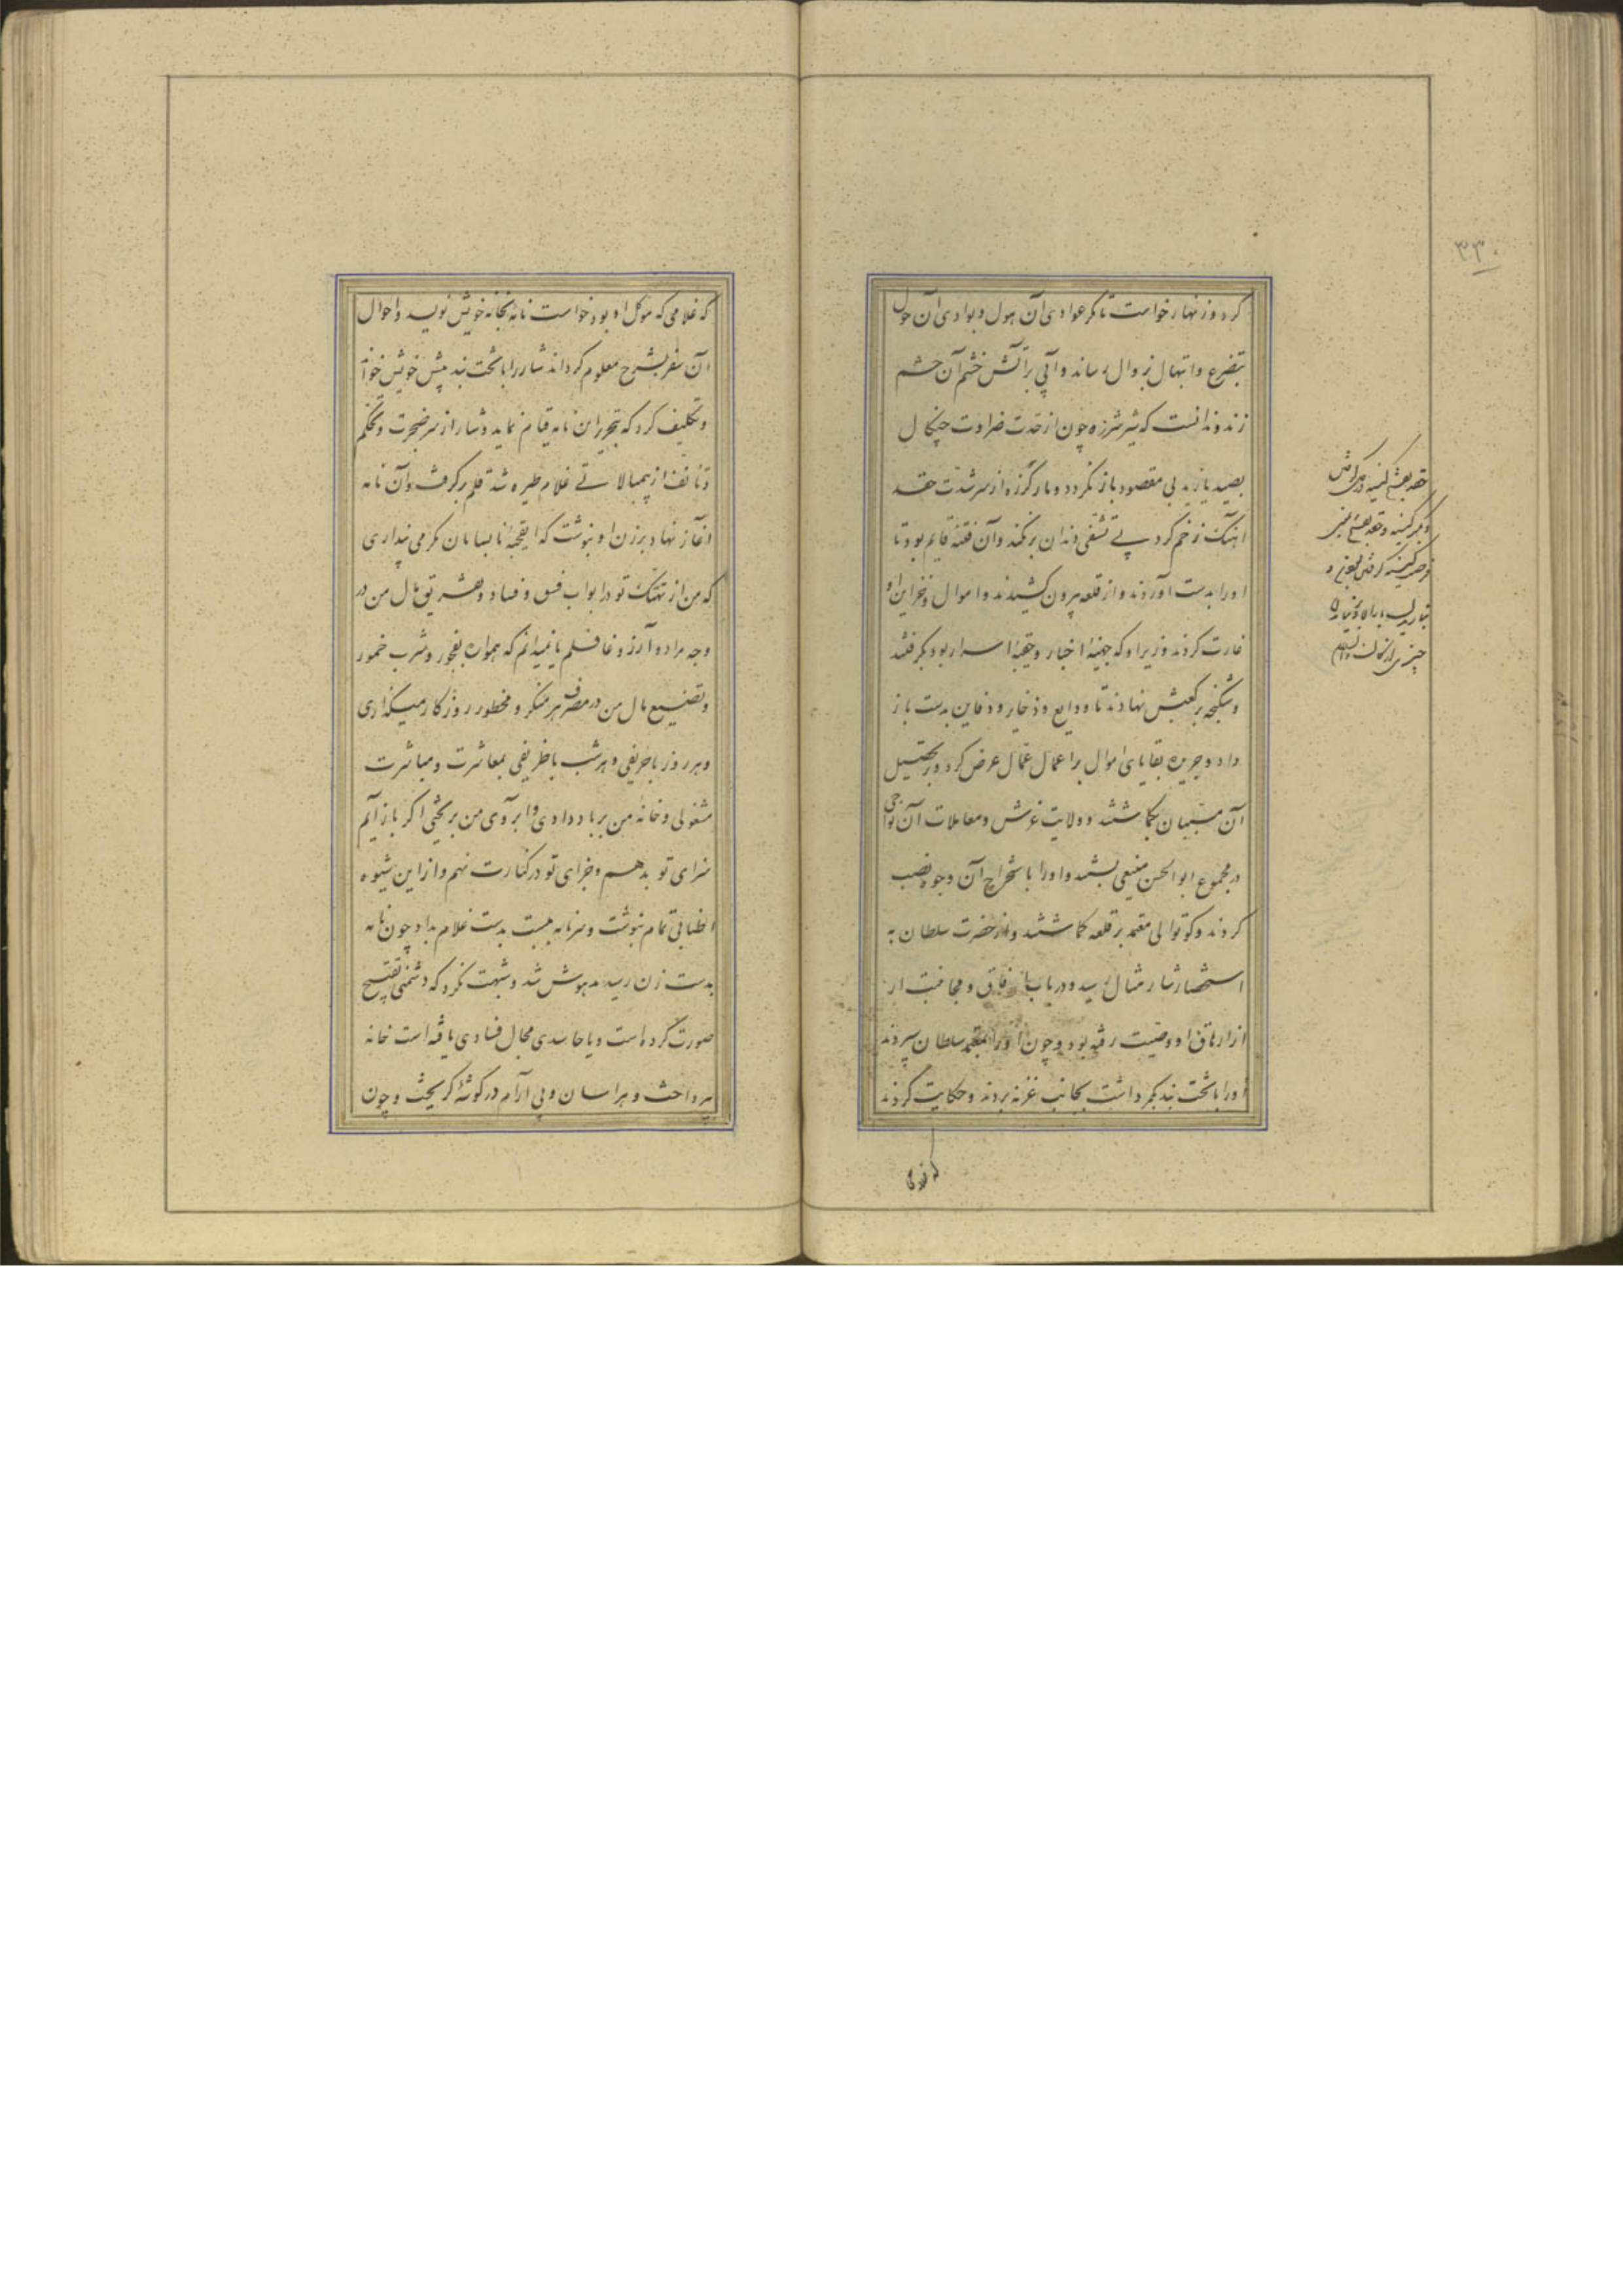 ۳۳۰
کرد و زنهار خواست تا مکر عوادی آن هول و بوادی آن حول
بتضرع و ابتهال بزوال رساند و آبی بر آتش خشم آن حشم
زند و ندانست که شیر شرزه چون از حدت ضراوت چنگال
بصید یازید بی مقصود باز نگردد و مار گرزه از سر شدت حقد
آهنگ زخم کرد بی تشفی دندان برنکند و آن فتنه قایم بود تا
او را بدست آوردند و از قلعه بیرون کشیدند و اموال و خزاین او
غارت کردند و وزیر او که جهینه اخبار و حقیبه اسرار بود بگرفتند
و شکنجه بر کعبش نهادند تا ودایع و ذخایر و دفاین بدست باز
داد و جریده بقایای اموال بر اعمال و عمال عرض کرد و بر تحصیل
آن مسیبان بگماشتند و ولایت غرش و معاملات آن نواحی
در مجموع ابو الحسن منیعی بستند و او را باستخراج آن وجوه نصب
کردند و کوتوالی معتمد بر قلعه گماشتند و از حضرت سلطان به
استحضار شار مثال رسید و در باب ارفاق و مجانبت از
از ارهاق او وصیت رفته بود و چون او را بمعتمد سلطان سپردند
او را با تخت بند بگرداشت بجانب غزنه بردند و حکایت کردند
که غلامی
که غلامی که موکل او بود خواست نامه بخانه خویش نویسد و احوال
آن سفر بشرح معلوم گرداند شار را با تخت بند پیش خویش خواند
و تکلیف کرد که بتحریر این نامه قیام نماید و شار از سر ضجرت و تحکم
و تانف از بی‌مبالاتی غلام طیره شد قلم برگرفت و آن نامه
آغاز نهاد و بزن او نبوشت که ای قحبه نابسامان مگر می‌پنداری
که من از تهتک تو در ابواب فسق و فساد و تفریق مال من در
وجه مراد و آرزو غافلم یا نمیدانم که همواره بفجور و شرب خمور
و تضییع مال من در مصرف هر منکر و محظور روزگار میگذاری
و هر روز با حریفی و هر شب با ظریفی بمعاشرت و مباشرت
مشغولی و خانه من بر باد دادی و آبروی من بریختی اگر باز آیم
سزای تو بدهم و جزای تو در کنارت نهم و از این شیوه
اطنابی تمام نبوشت و سر نامه ببست بدست غلام داد چون نامه
بدست زن رسید مدهوش شد و شبهت نکرد که دشمنی تقبیح
صورت کرده است و یا حاسدی مجال فسادی یافته است خانه
بپرداخت و هراسان و بی آرام در گوشهٔ گریخت و چون